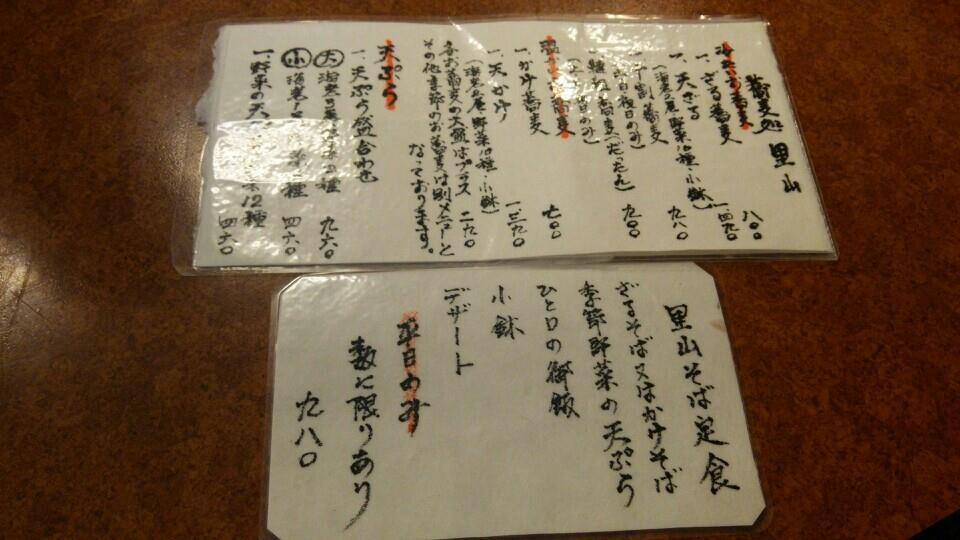 蕎麦処 里山
冷たい蕎麦
一、ざる蕎麦 八〇〇
一、天ざる 一四九〇
(海老二尾 野菜10種・小鉢)
一、十割蕎麦 九八〇
(土日祝日のみ)
(だったん) 九〇〇
温かい蕎麦
一、かけ蕎麦 七〇〇
一、天かけ 一三九〇
(海老二尾 野菜10種・小鉢)
各お蕎麦の大盛はプラス 二九〇
その他季節のお蕎麦は別メニューと
なっております。
天ぷら
一、天ぷら盛合わせ
大 海老 種 九六〇
小 海老 種 四六〇
一、野菜の天 12種 四六〇
里山そば定食
ざるそば又はかけそば
季節野菜の天ぷら
ひと口の御飯
小鉢
デザート
平日のみ
数に限りあり
九八〇